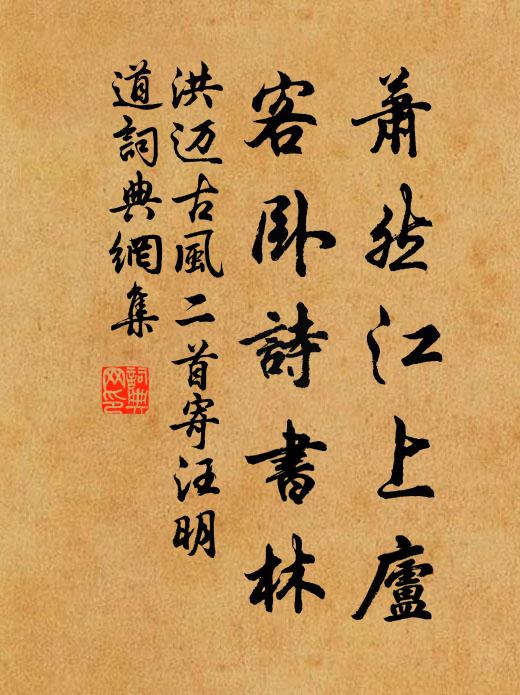 蕭然江上廬
客卧詩書林
洪迈古風二首寄汪明
道詞典網集
詞典
网印